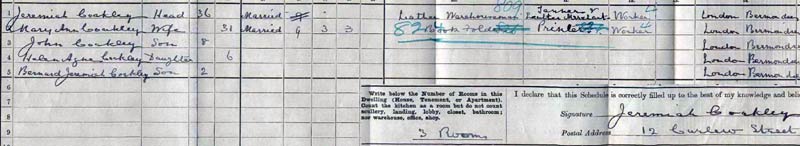 1 Jeremiah Coakley Head 36 Married Leather Warehouseman 809 Tanner & Leather Merchant Worker London Bermondsey
2 Mary Ann Coakley Wife 31 Married 9 3 3 82 Book Folder Printer Worker London Bermondsey
3 John Coakley Son 8 London Bermondsey
4 Helen Agnes Coakley Daughter 6 London Bermondsey
5 Bernard Jeremiah Coakley Son 2 London Bermondsey
6
7
8
9
Write below the Number of Rooms in this
Dwelling (House, Tenement, or Apartment).
Count the kitchen as a room but do not count
scullery, landing, lobby, closet, bathroom;
nor warehouse, office, shop.
3 Rooms
I declare that this Schedule is correctly filled up to the best of my knowledge and beli
Signature Jeremiah Coakley
Postal Address 12 Curlew Street